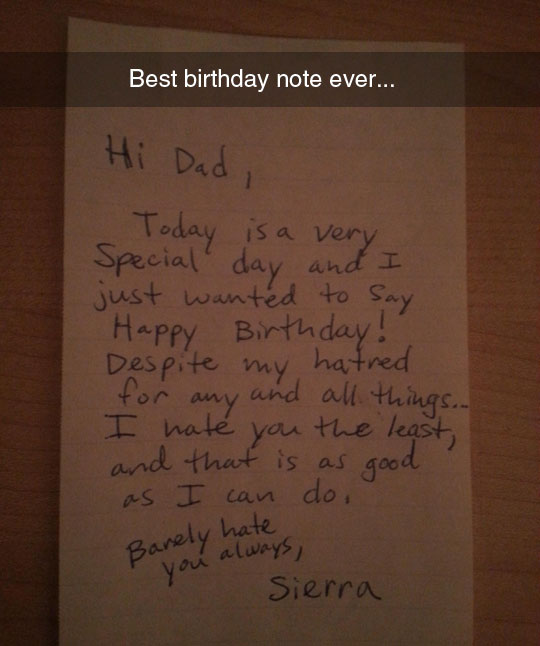 Best birthday note ever...
Hi Dad,
Today is a very
Special day and I
just wanted to say
Happy Birthday!
Despite my hatred
for any and all things...
I hate you the least,
and that is as good
as I can do.
Barely hate
you always,
Sierra